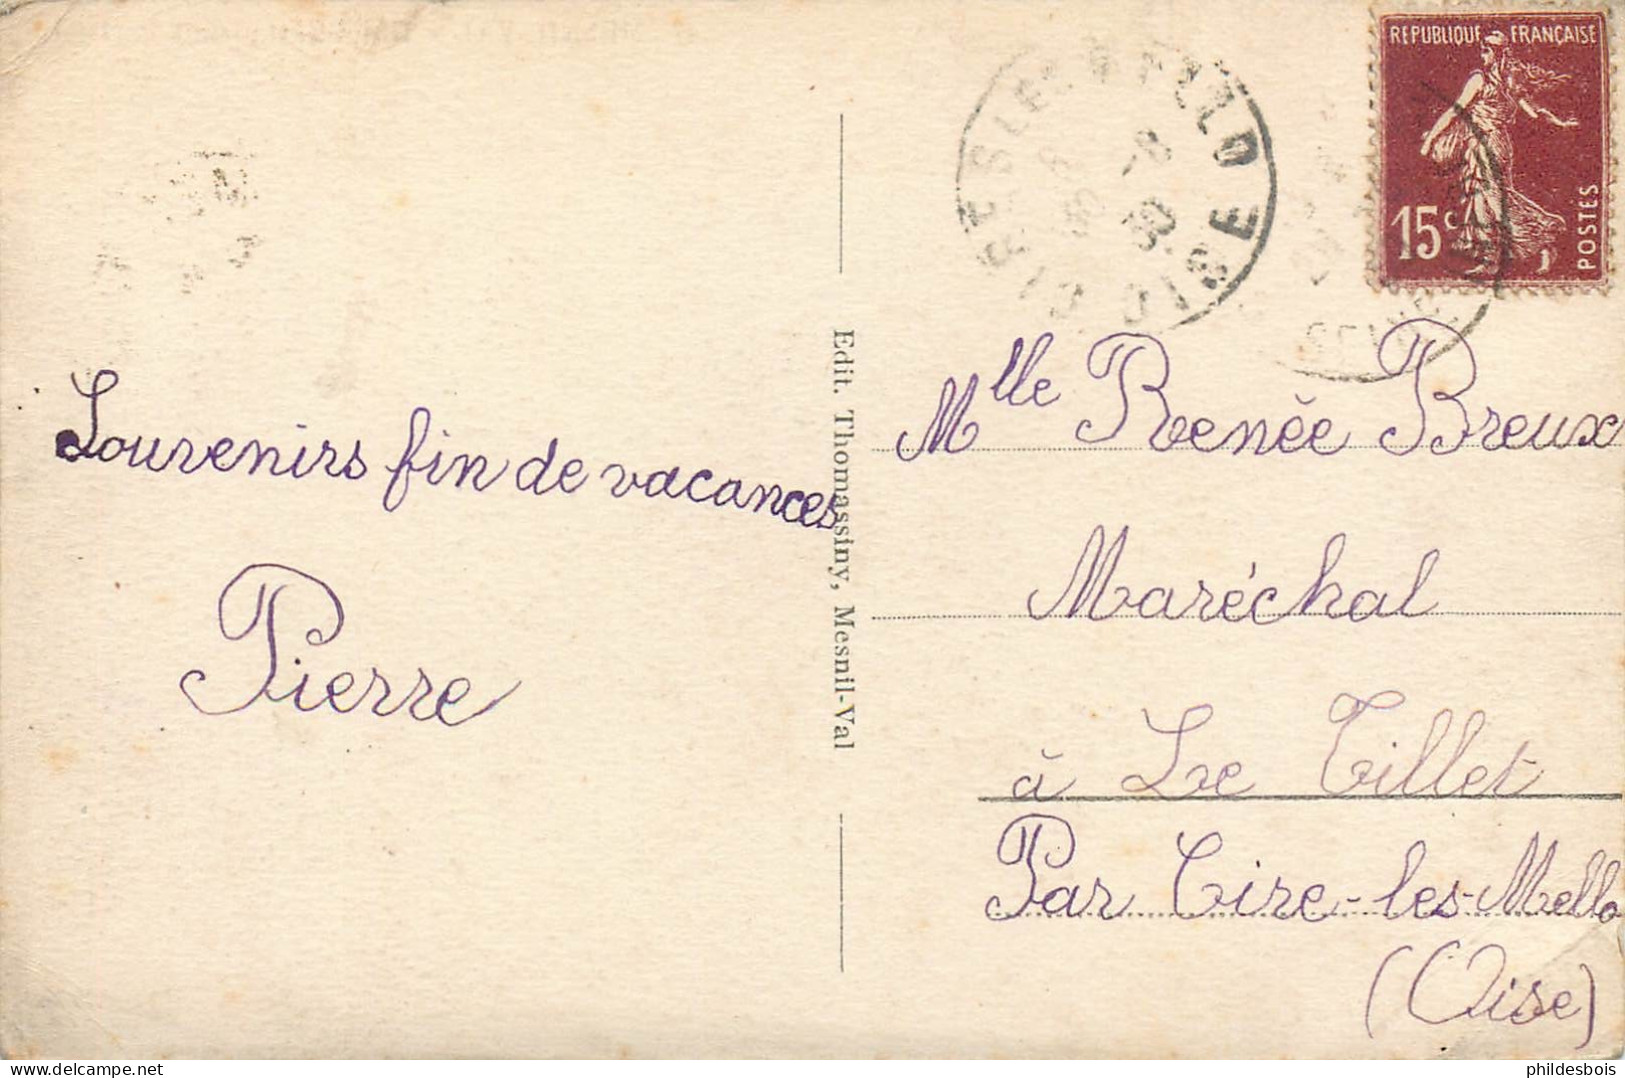 Souvenirs fin de vacances
Pierre
Edit. Thomassiny, Mesnil-Val
RÉPUBLIQUE FRANÇAISE
15c
POSTES
OISE
Mlle Renée Breux
Maréchal
à Le Tillet
Par Cire-les-Mello
(Oise)
delcampe.net
phildesbois